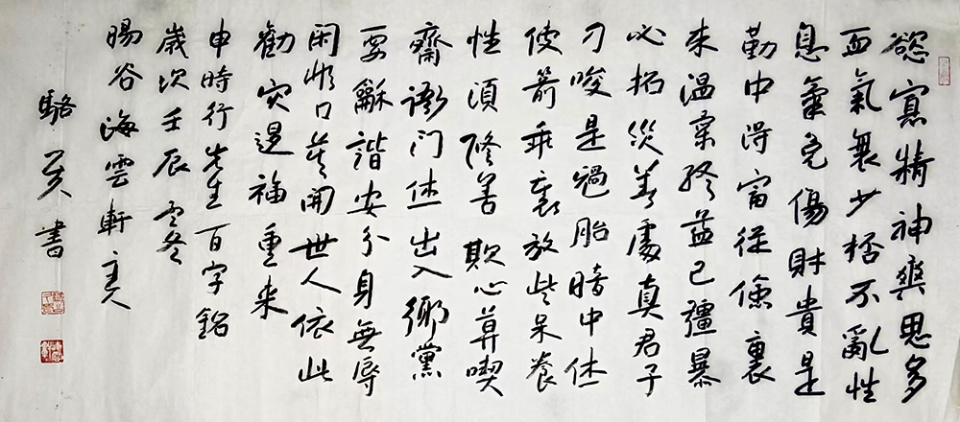 慾寡精神爽思多
血氣衰少杯不亂性
息氣免傷財貴是
勤中得富從儉裏
来温柔終益己彊暴
必招災善處真君子
刁唆是禍胎暗中休
使箭乖裏放些呆養
性須修善欺心莫喫
齋衙门休出入鄉黨
要龢諧安分身無辱
闲非口莫開世人依此
勸灾退福重来
申時行先生百字銘
歲次壬辰之冬
暘谷海雲軒主人
駱英書